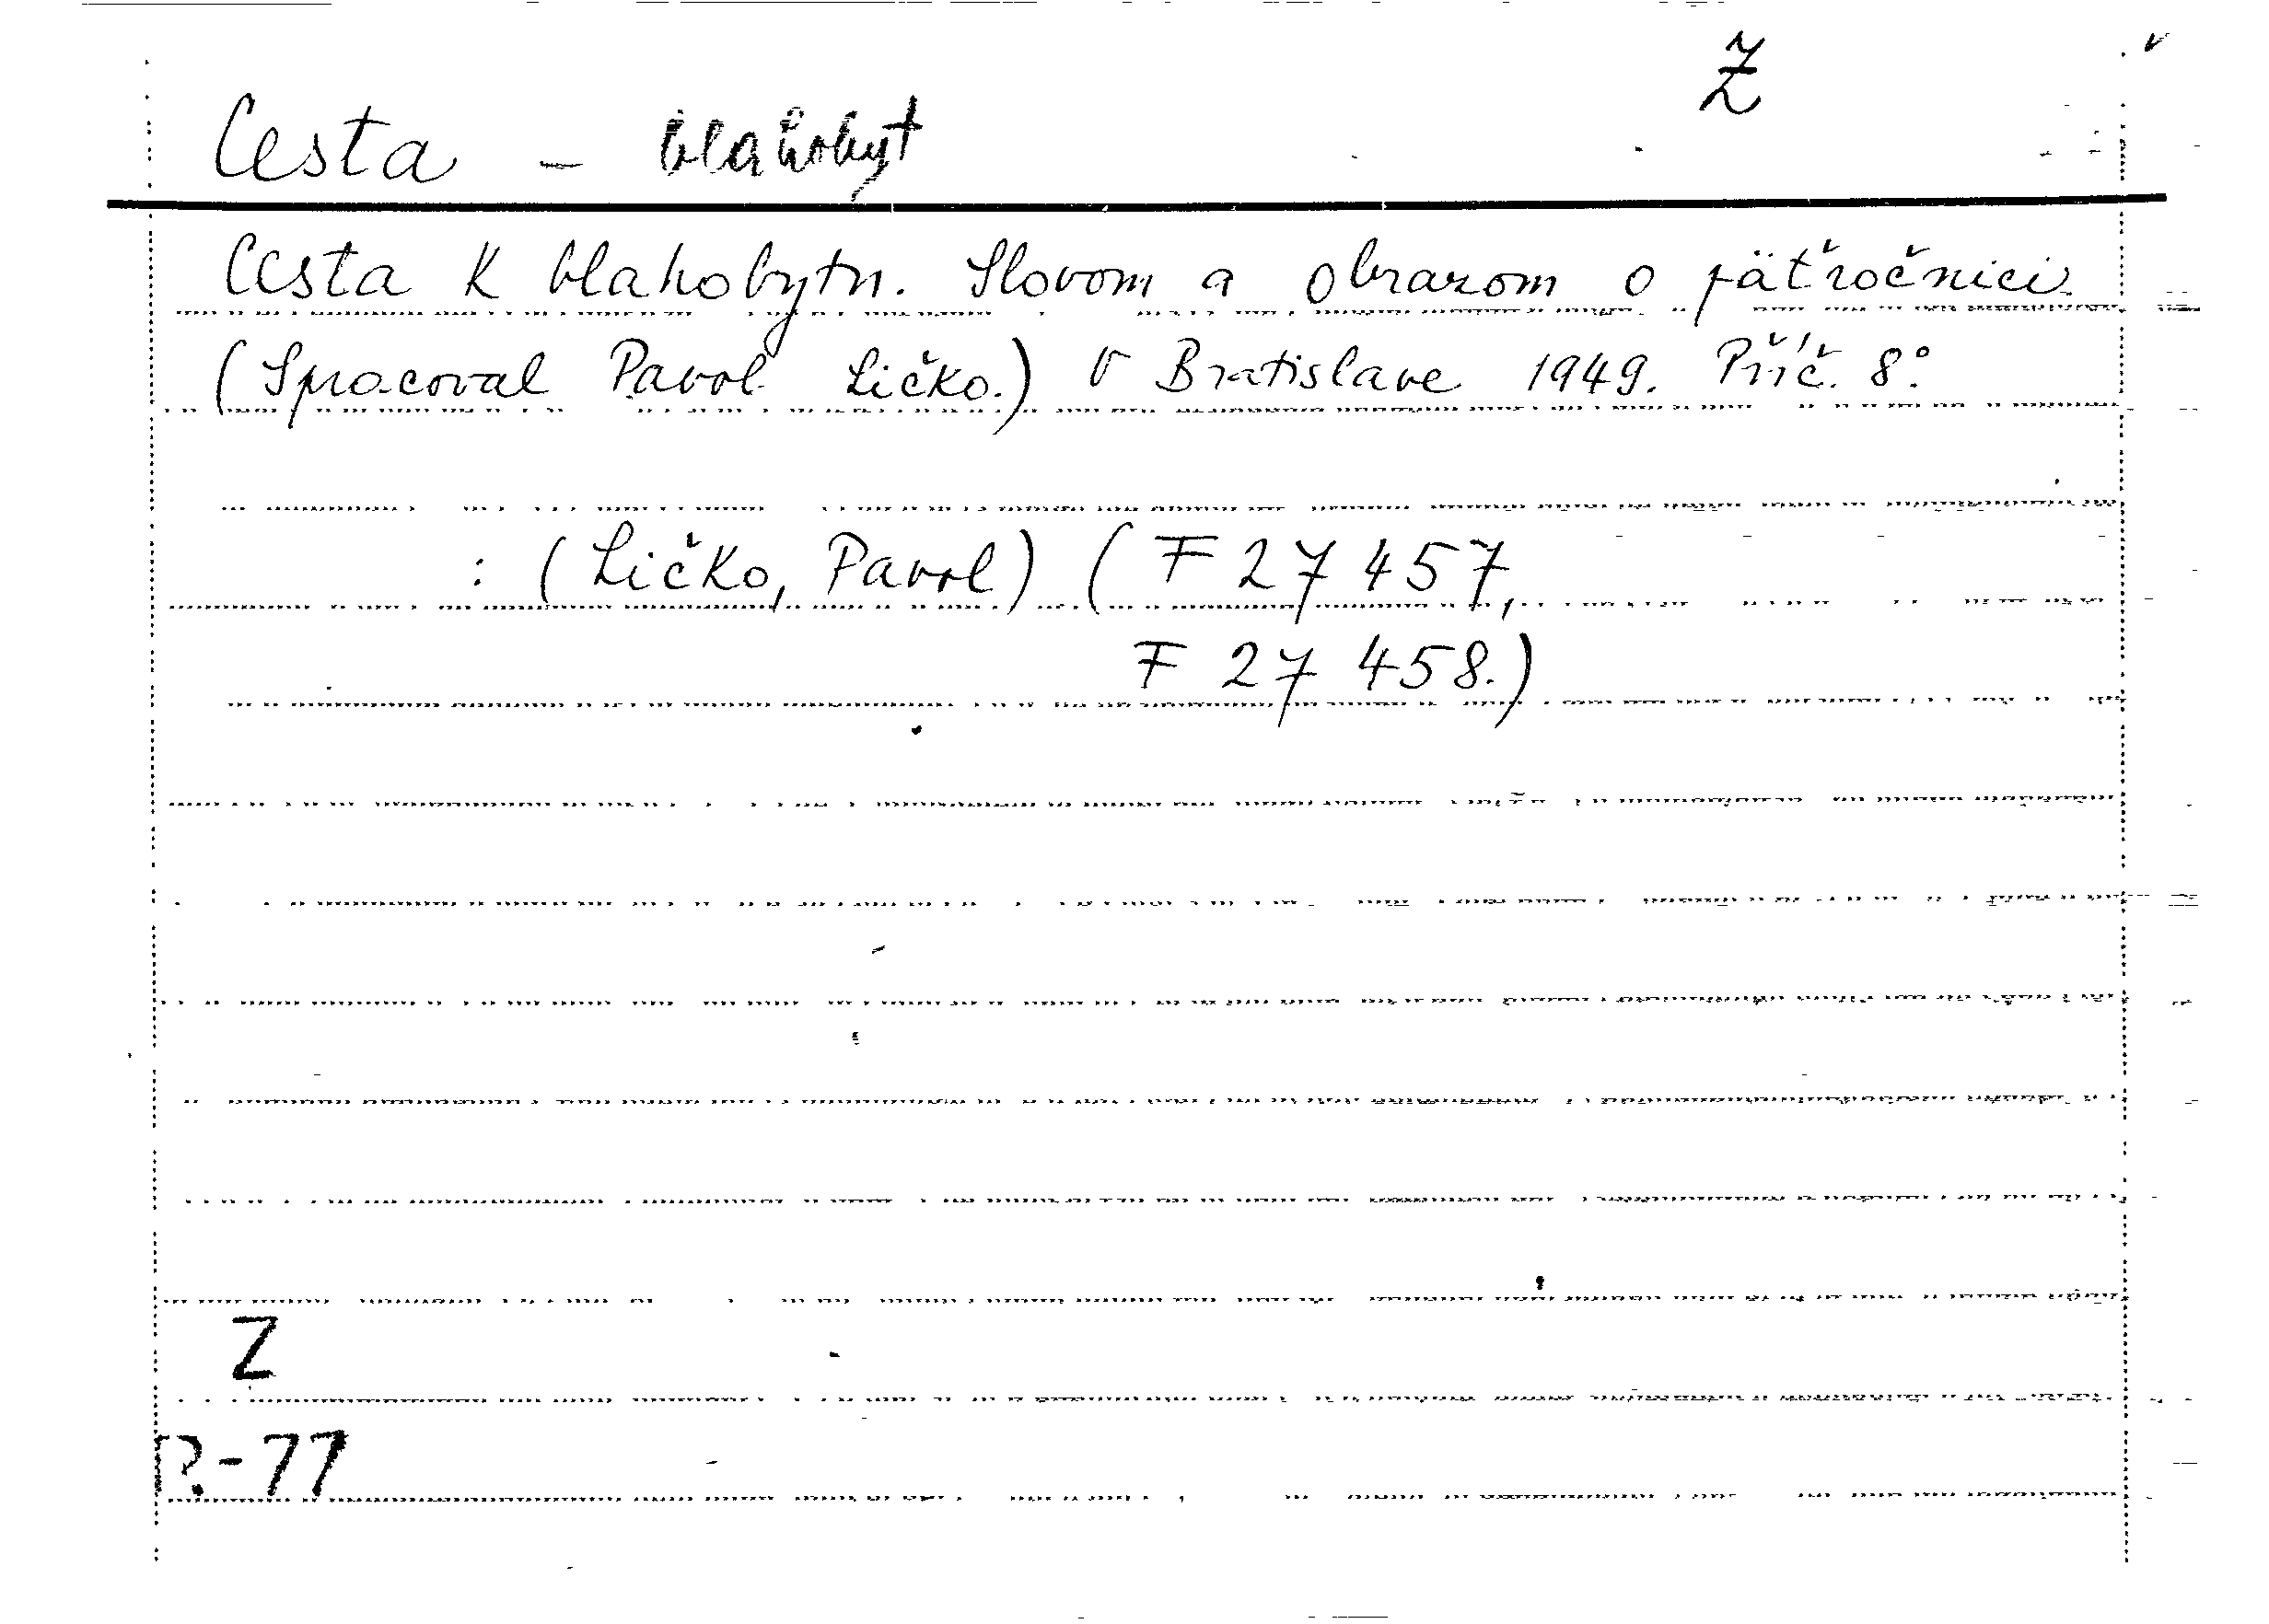 Z
Cesta - blahobyt
Cesta k blahobytu. Slovom a obrazom o päťročnici.
(Spracoval Pavol Ličko.) V Bratislave 1949. Příč. 8°.
: (Ličko, Pavol) (F 27 457,
F 27 458.)
Z
-77